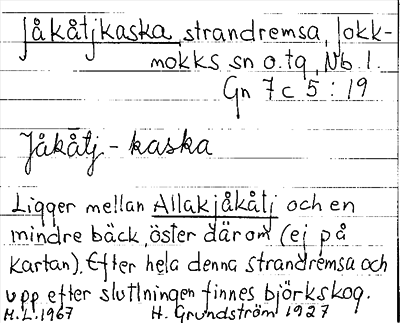 Jåkåtjkaska, strandremsa, Jokk-
mokks sn o.tg, Nb l.
Gn 7c 5:19
Jåkåtj - kaska
Ligger mellan Allakjåkåtj och en
mindre bäck, öster därom (ej på
kartan). Efter hela denna strandremsa och
upp efter slutlningen finnes björkskog.
H.L. 1967 H. Grundström 1927